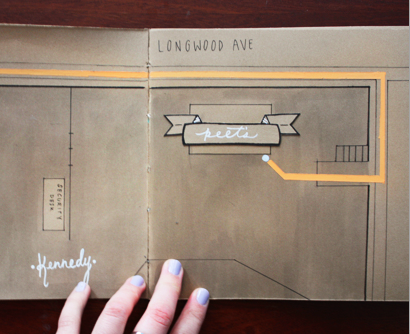 LONGWOOD AVE
peet's
SECURITY
DESK
·Kennedy·